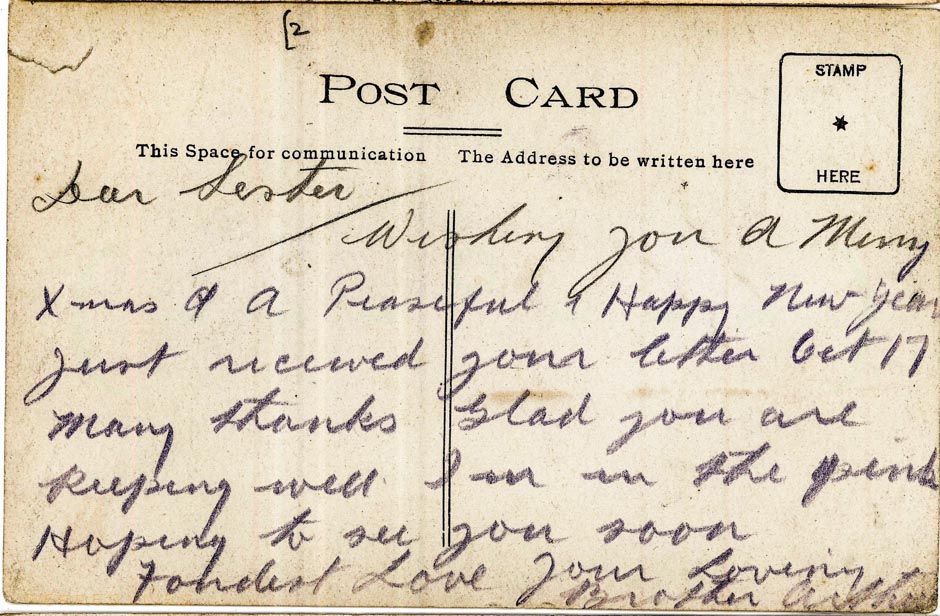 [2
POST CARD
STAMP
HERE
This Space for communication The Address to be written here
Dear Sester
Wishing you A Merry
X-mas & A Peaseful & Happy New Year
Just recieved your letter Oct 17
Many thanks Glad you are
Keeping well I m in the pink
Hoping to see you soon
Fondest Love Your Loving
Brother Arthur